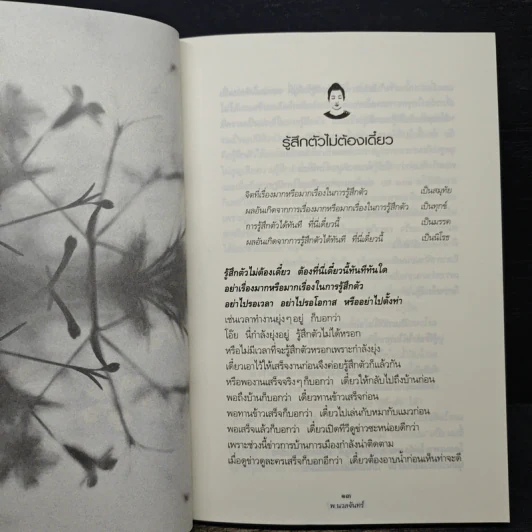 รู้สึกตัวไม่ต้องเดี๋ยว
จิตที่เรื่องมากหรือมากเรื่องในการรู้สึกตัว เป็นสมุทัย
ผลอันเกิดจากการเรื่องมากหรือมากเรื่องในการรู้สึกตัว เป็นทุกข์
การรู้สึกตัวได้ทันที ที่นี่เดี๋ยวนี้ เป็นมรรค
ผลอันเกิดจากการรู้สึกตัวได้ทันที ที่นี่เดี๋ยวนี้ เป็นนิโรธ
รู้สึกตัวไม่ต้องเดี๋ยว ต้องที่นี่เดี๋ยวนี้ทันทีทันใด
อย่าเรื่องมากหรือมากเรื่องในการรู้สึกตัว
อย่าไปรอเวลา อย่าไปรอโอกาส หรืออย่าไปตั้งท่า
เช่นเวลาทำงานยุ่งๆ อยู่ ก็บอกว่า
โอ๊ย นี่กำลังยุ่งอยู่ รู้สึกตัวไม่ได้หรอก
หรือไม่มีเวลาที่จะรู้สึกตัวหรอกเพราะกำลังยุ่ง
เดี๋ยวเอาไว้ให้เสร็จงานก่อนจึงค่อยรู้สึกตัวก็แล้วกัน
หรือพองานเสร็จจริงๆ ก็บอกว่า เดี๋ยวให้กลับไปถึงบ้านก่อน
พอถึงบ้านก็บอกว่า เดี๋ยวทานข้าวเสร็จก่อน
พอทานข้าวเสร็จก็บอกว่า เดี๋ยวไปเล่นกับหมากับแมวก่อน
พอเสร็จแล้วก็บอกว่า เดี๋ยวเปิดทีวีดูข่าวซะหน่อยดีกว่า
เพราะช่วงนี้ข่าวการบ้านการเมืองกำลังน่าติดตาม
เมื่อดูข่าวดูละครเสร็จก็บอกอีกว่า เดี๋ยวต้องอาบน้ำก่อนเห็นท่าจะดี
๑๓
พ.นวลจันทร์